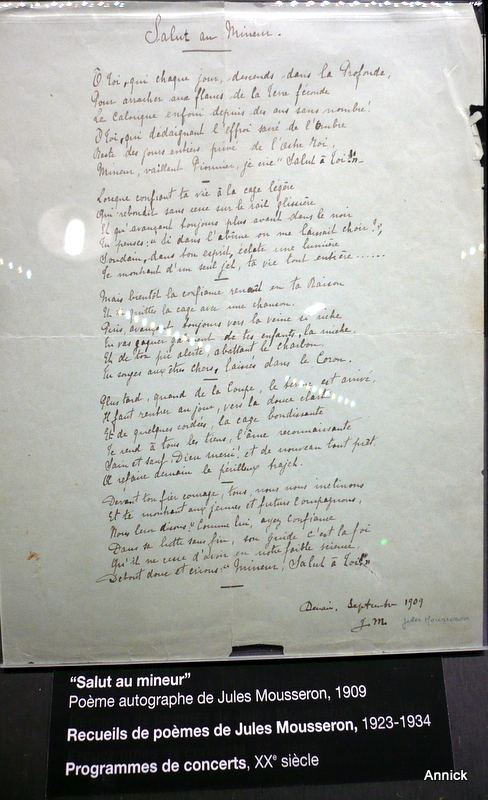 Salut au Mineur.
Ô toi, qui chaque jour, descends dans la Profonde,
Pour arracher aux flancs de la terre féconde
Le Calorique enfoui depuis des ans sans nombre!
Ô toi, qui dédaignant l'effroi sacré de l'Ombre
Reste des jours entiers privé de l'Astre Roi,
Mineur, vaillant Pionnier, je crie "Salut à toi!!"
Lorsque confiant ta vie à la cage légère
Qui rebondit sans cesse sur le rail glissière
Et qu'avançant toujours plus avant dans le noir
Tu penses: "Si dans l'abîme on me laissait choir!"
Soudain, dans ton esprit, éclate une lumière
Te montrant d'un seul jet, ta vie tout entière......
Mais bientôt la confiance renaît en ta Raison
Et quittes la cage avec une chanson.
Puis, avançant toujours vers la veine si riche
Tu vas gagner gaiement de tes enfants, la miche.
Et de ton pic alerte, abattant le charbon
Tu songes aux êtres chers, laissés dans le Coron.
Plus tard, quand de la Coupe, le est arrivé,
Il faut rentrer au jour, vers la douce clarté
Et de quelques cordées, la cage bondissante
Te rend à tous les tiens, l'âme reconnaissante
Sain et sauf, Dieu merci! et de nouveau tout prêt,
À refaire demain le périlleux trajet.
Devant ton fier courage, tous, nous nous inclinons
Et te montrant aux jeunes et futurs compagnons,
Nous leur disons: "Comme lui, ayez confiance
Dans sa lutte sans fin, son guide c'est la foi
Qu'il ne cesse d'avoir en notre faible science.
Debout donc et crions: "Mineur! Salut à toi!!"
Denain, Septembre 1909
J. M. Jules Mousseron
"Salut au mineur"
Poème autographe de Jules Mousseron, 1909
Recueils de poèmes de Jules Mousseron, 1923-1934
Programmes de concerts, XXe siècle
Annick